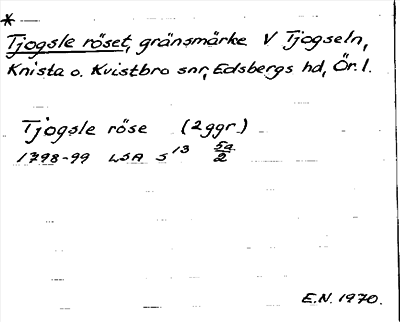 *
Tjogsle röset, gränsmärke V Tjogseln,
Knista o. Kvistbro snr, Edsbergs hd, Ör. l.
Tjogsle röse (2 ggr.)
1798-99 LSA S 13 5a/2
E.N. 1970.